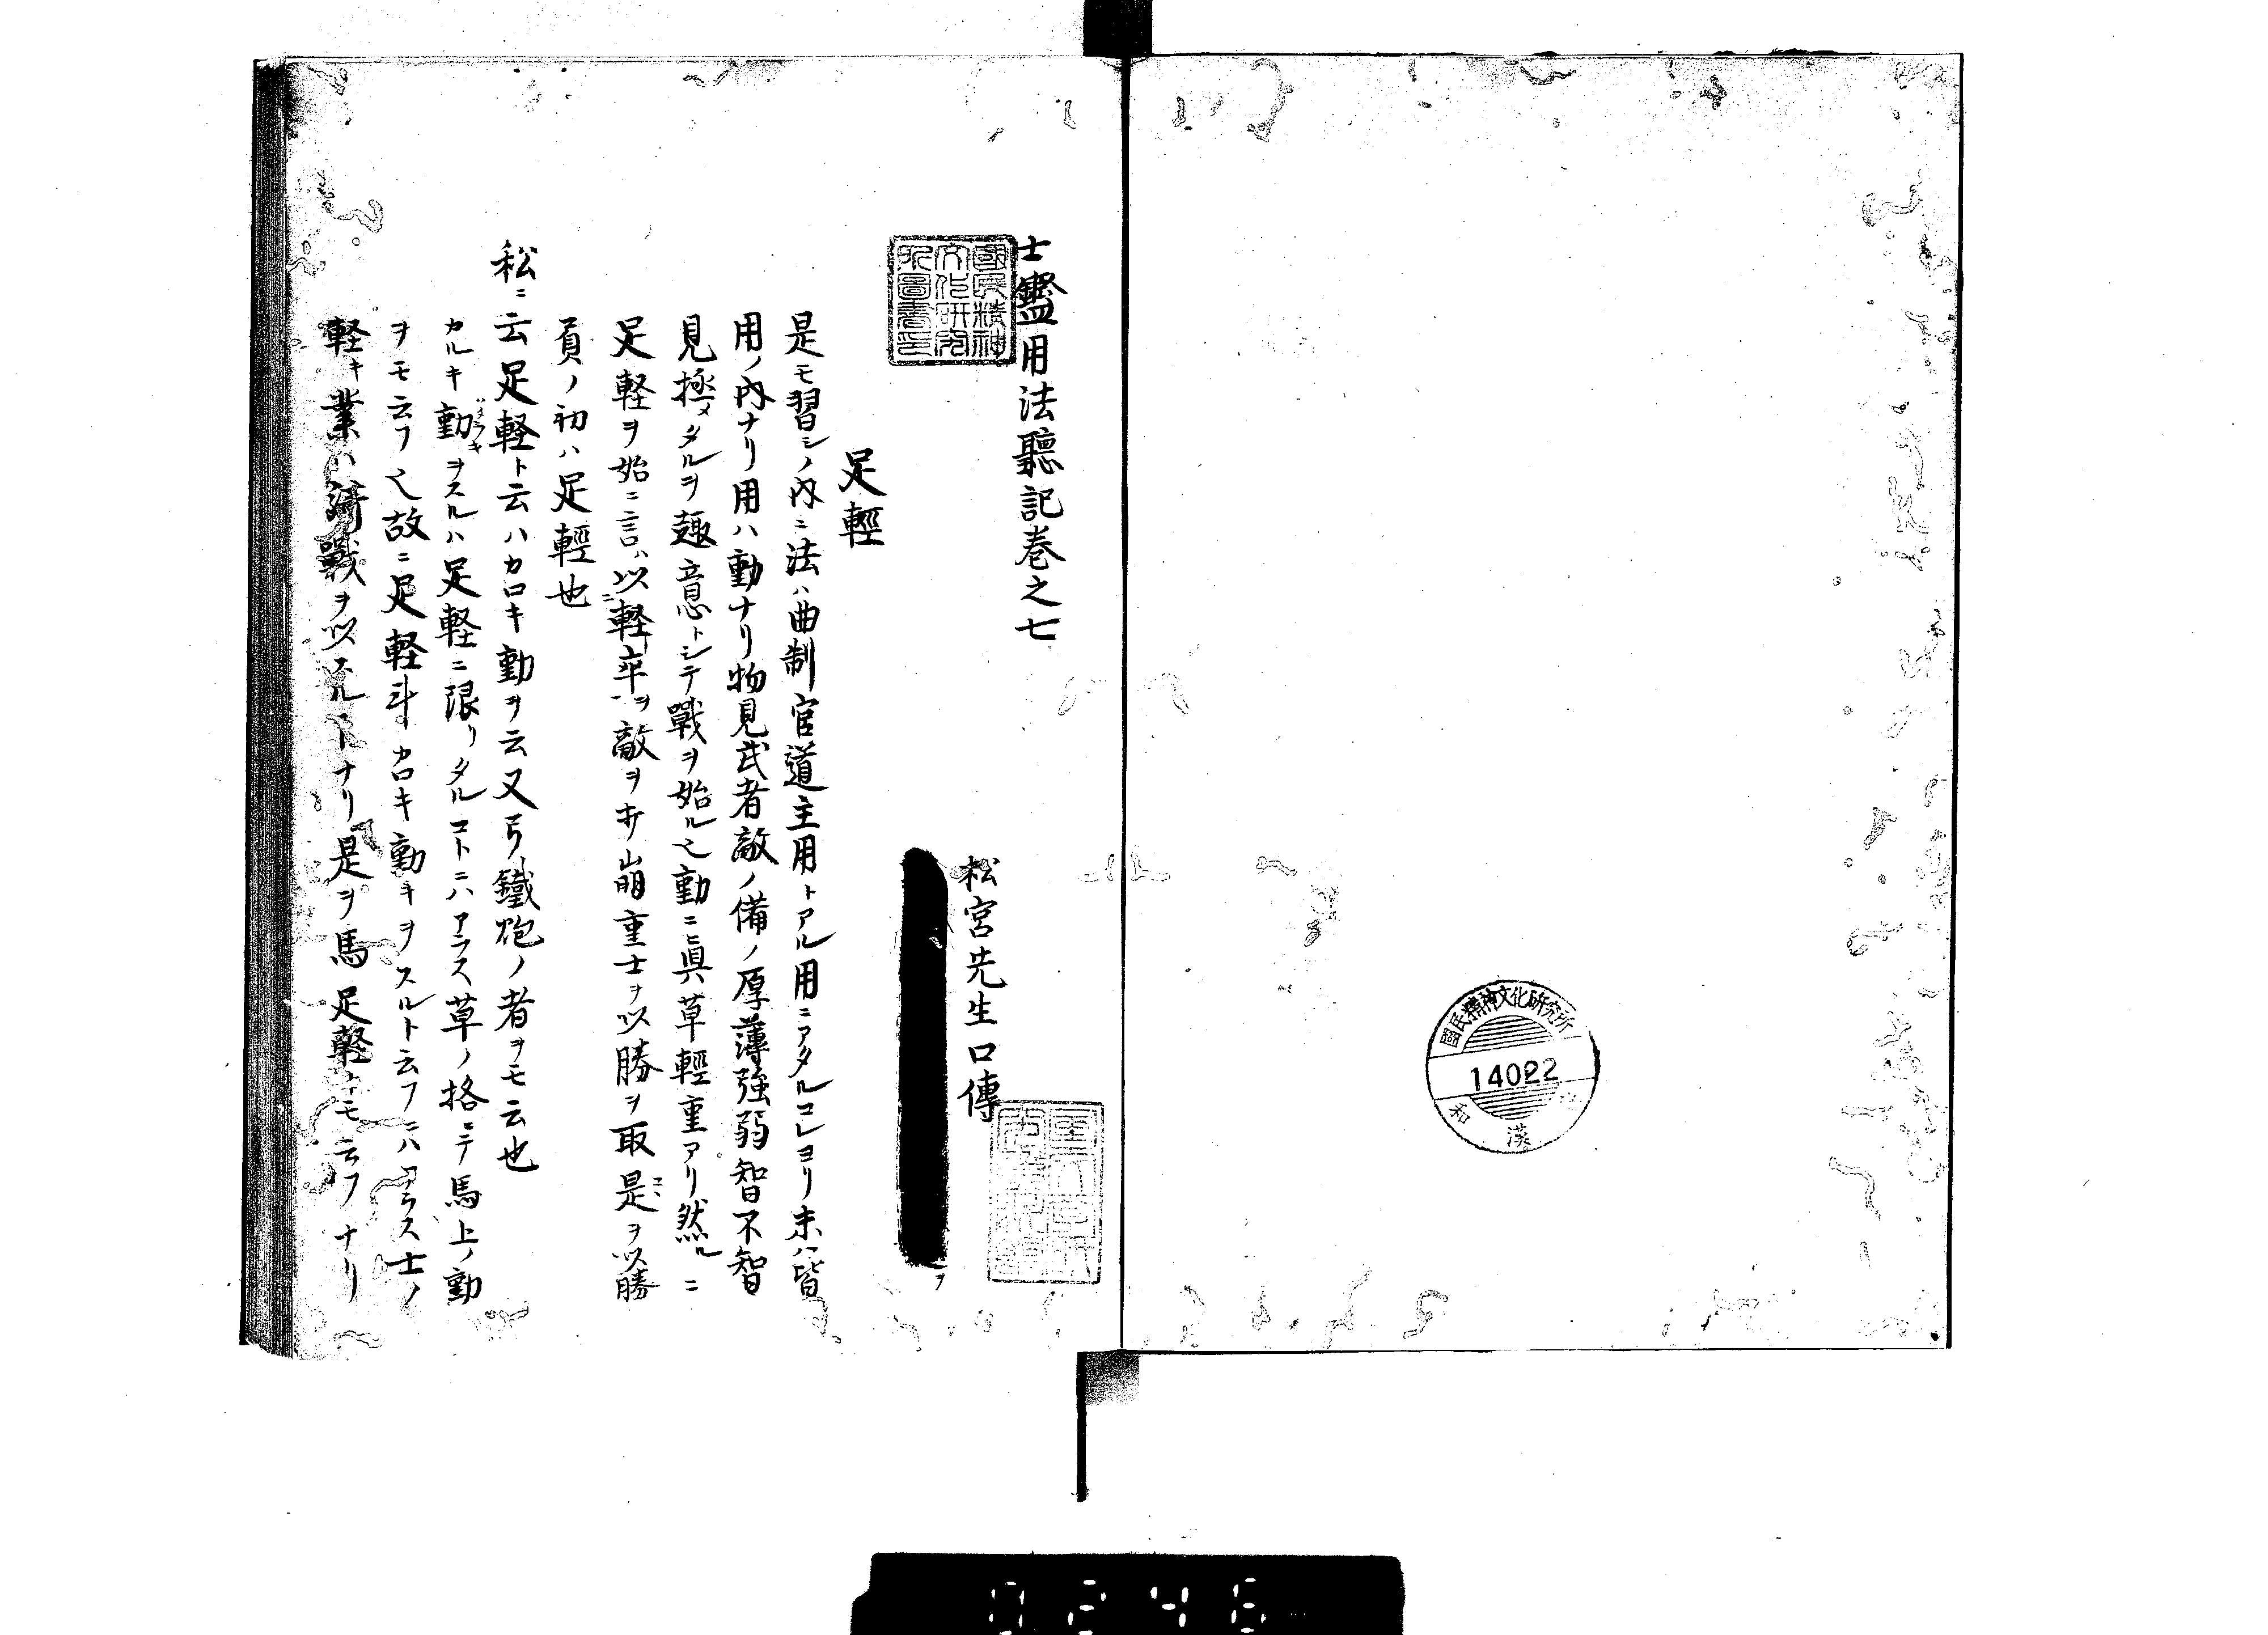 國民精神文化研究所
14022
和
漢
士鑒用法聽記巻之七
國民精神文化研究所圖書之印
松宮先生口傳
ヲ
足輕
是モ習シノ内ニ法ハ曲制官道主用トアル用ニアタルコレヨリ末ハ皆
用ノ内ナリ用ハ動ナリ物見武者敵ノ備ノ厚薄強弱智不智
見極メタルヲ趣意トシテ戰ヲ始ル之動ニ眞草輕重アリ然ルニ
足軽ヲ始ニ言ハ以軽卒ヲ敵ヲ崩重士ヲ以勝ヲ取是ヲ以勝
負ノ初ハ足輕也
松ニ云足軽ト云ハカロキ動ヲ云又弓鐵炮ノ者ヲモ云也
カルキ動ハタラキヲスルハ足軽ニ限リタルコトニハアラス草ノ格ニテ馬上ノ動
ヲモ云フ之故ニ足軽斗カロキ動キヲスルト云フニハアラス士ノ
軽キ業ハ戰ヲ以ナリ是ヲ馬足軽トモ云フナリ
0246